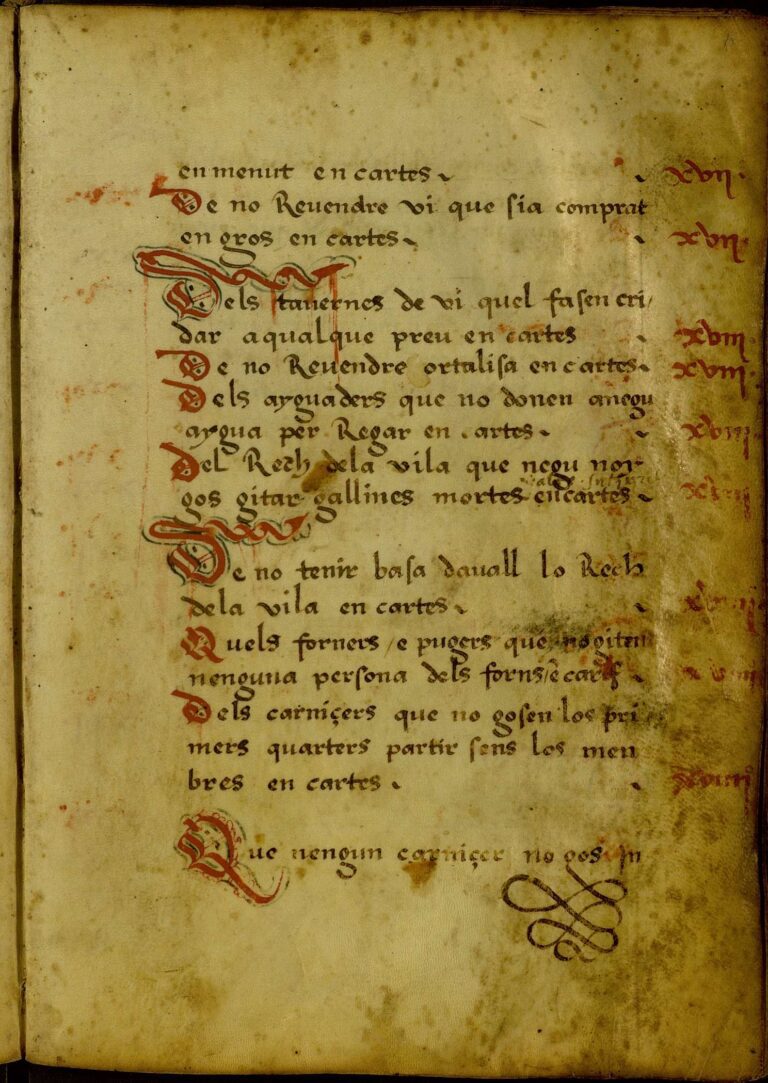 en menut en cartes xvii
De no Reuendre vi que sia comprat
en gros en cartes xvii
Dels tauernes de vi quel fasen cri/
dar a qualque preu en cartes xviii
De no Reuendre ortalisa en cartes xviii
Dels ayguaders que no donen anegu
aygua per Regar en cartes
Del Rech dela vila que negu nor
gos gitar gallines mortes en cartes
De no tenir basa dauall lo Rech
dela vila en cartes
Quels forners / e pugers que no giten
nenguna persona dels forns / ē cart̃
Dels carniçers que no gosen los pri
mers quarters partir sens los men
bres en cartes
Que nengun carniçer no gos jn